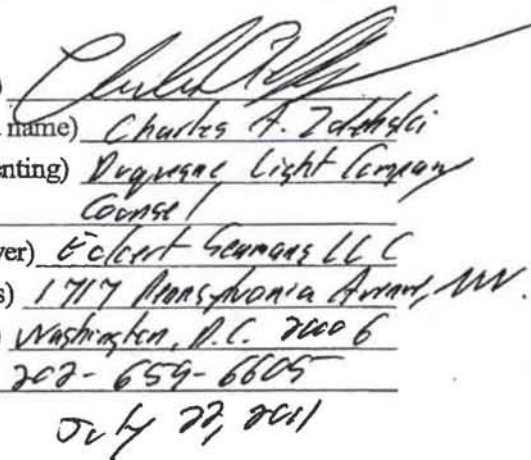 )
name) Charles A. Zdebski
enting) Duquesne Light Company
Counsel
yer) Eckert Seamans LLC
s) 1717 Pennsylvania Avenue, NW.
) Washington, D.C. 20006
202-659-6605
July 22, 2011